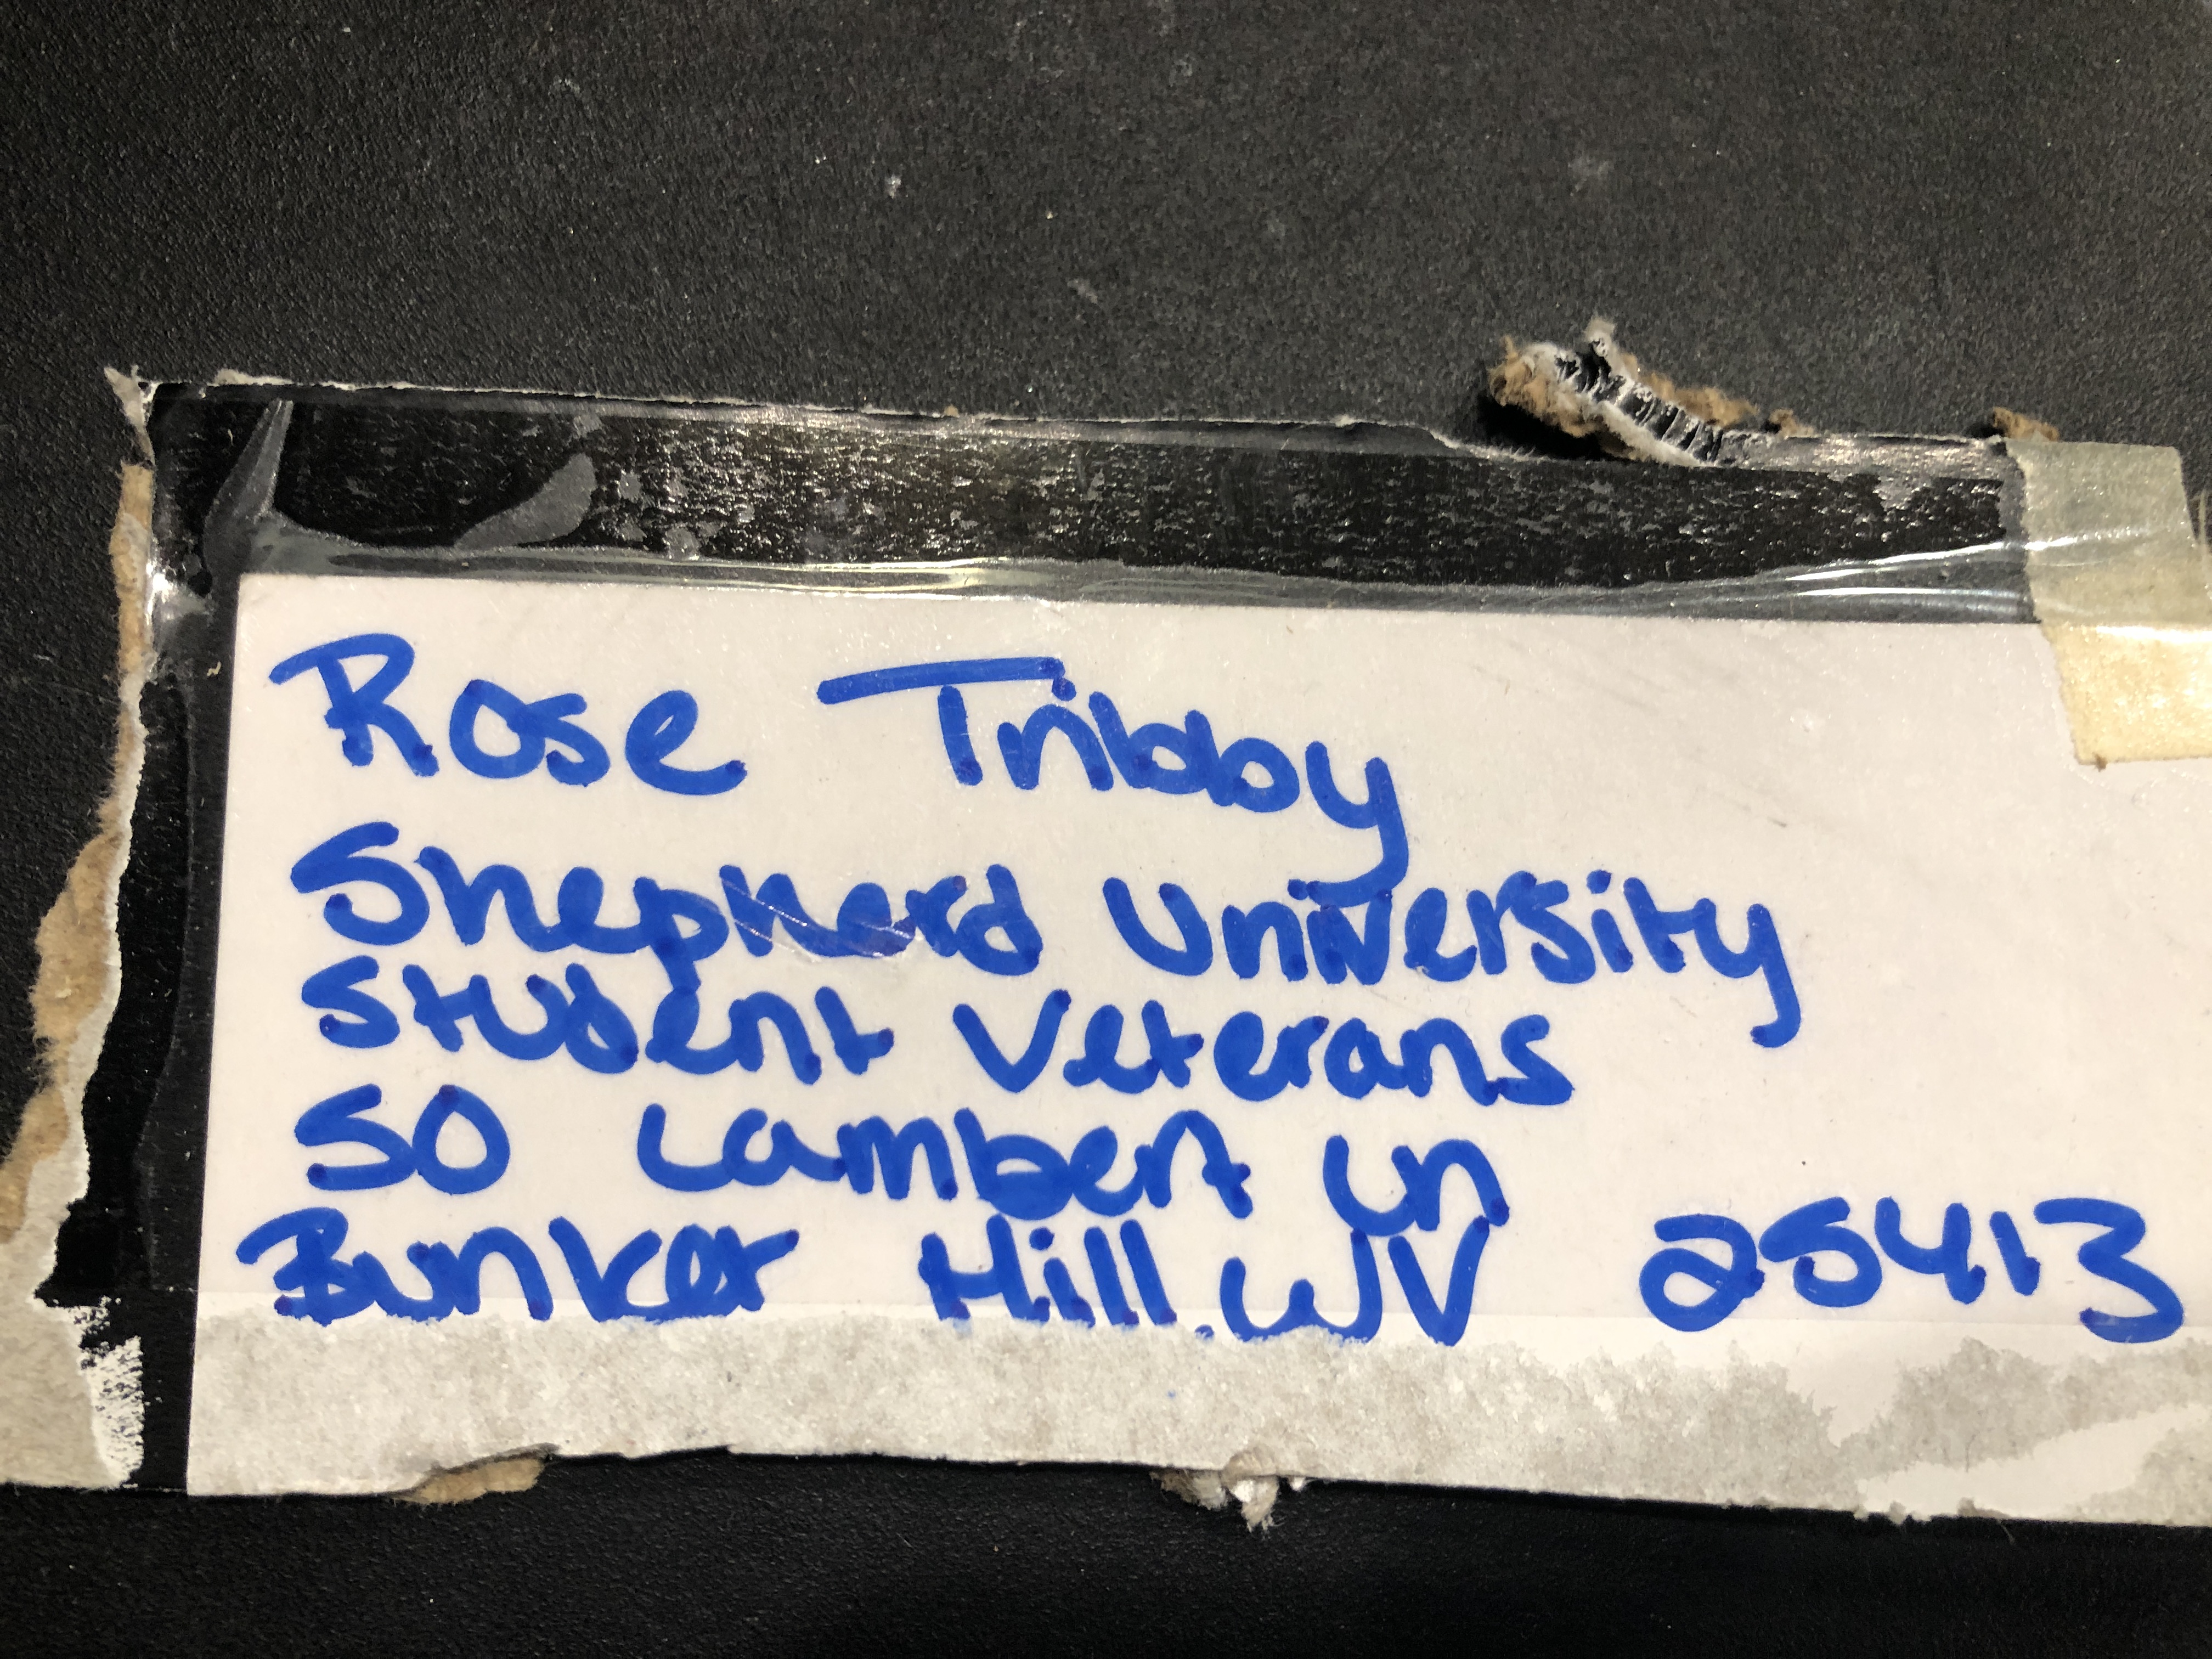 Rose Tribby
Shepherd University
Student Veterans
50 Lambert Ln
Bunker Hill, WV 25413